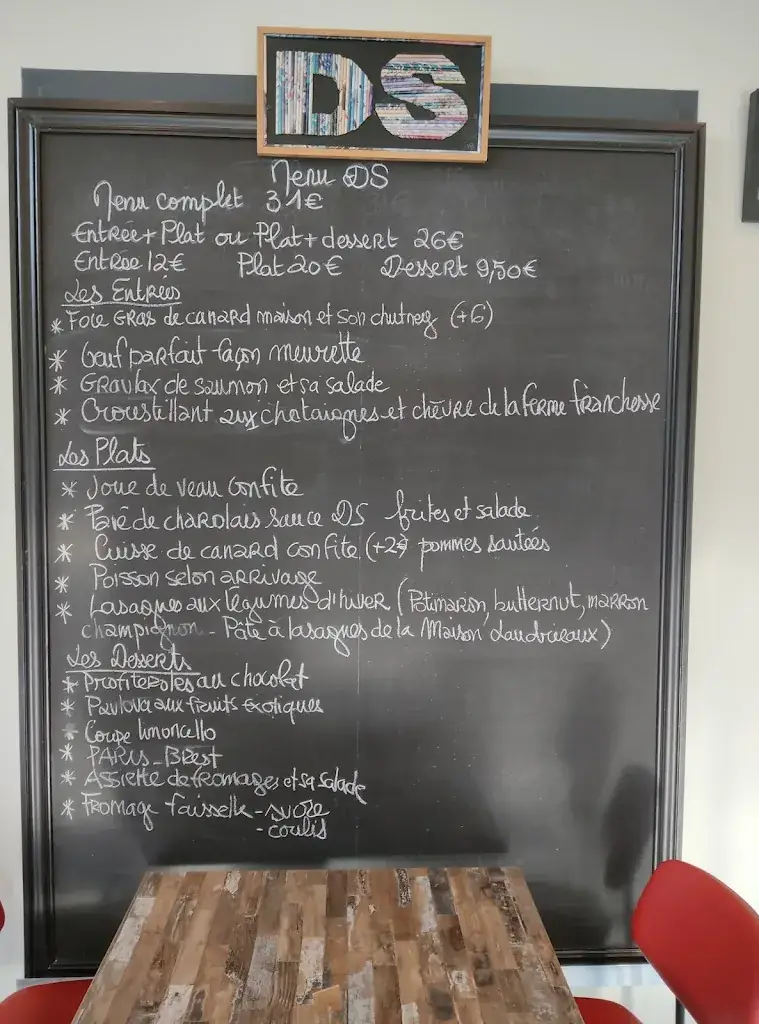 DS
Menu DS
Menu complet 31€
Entrée + Plat ou Plat + dessert 26€
Entrée 12€ Plat 20€ Dessert 9,50€
Les Entrées
* Foie Gras de canard maison et son chutney (+6)
* Oeuf parfait façon meurette
* Gravlax de saumon et sa salade
* Croustillant aux chataignes et chèvre de la ferme franchesse
Les Plats
* Joue de veau confite
* Pavé de charolais sauce DS frites et salade
* Cuisse de canard confite (+2€) pommes sautées
* Poisson selon arrivage
* Lasagnes aux légumes d'hiver (Potimaron, butternut, marron
champignon - Pâte à lasagnes de la Maison)
Les Desserts
* Profiteroles au chocolat
* Pavlova aux fruits exotiques
* Coupe limoncello
* PARIS-Brest
* Assiette de fromages et sa salade
* Fromage faisselle - sucre
- coulis